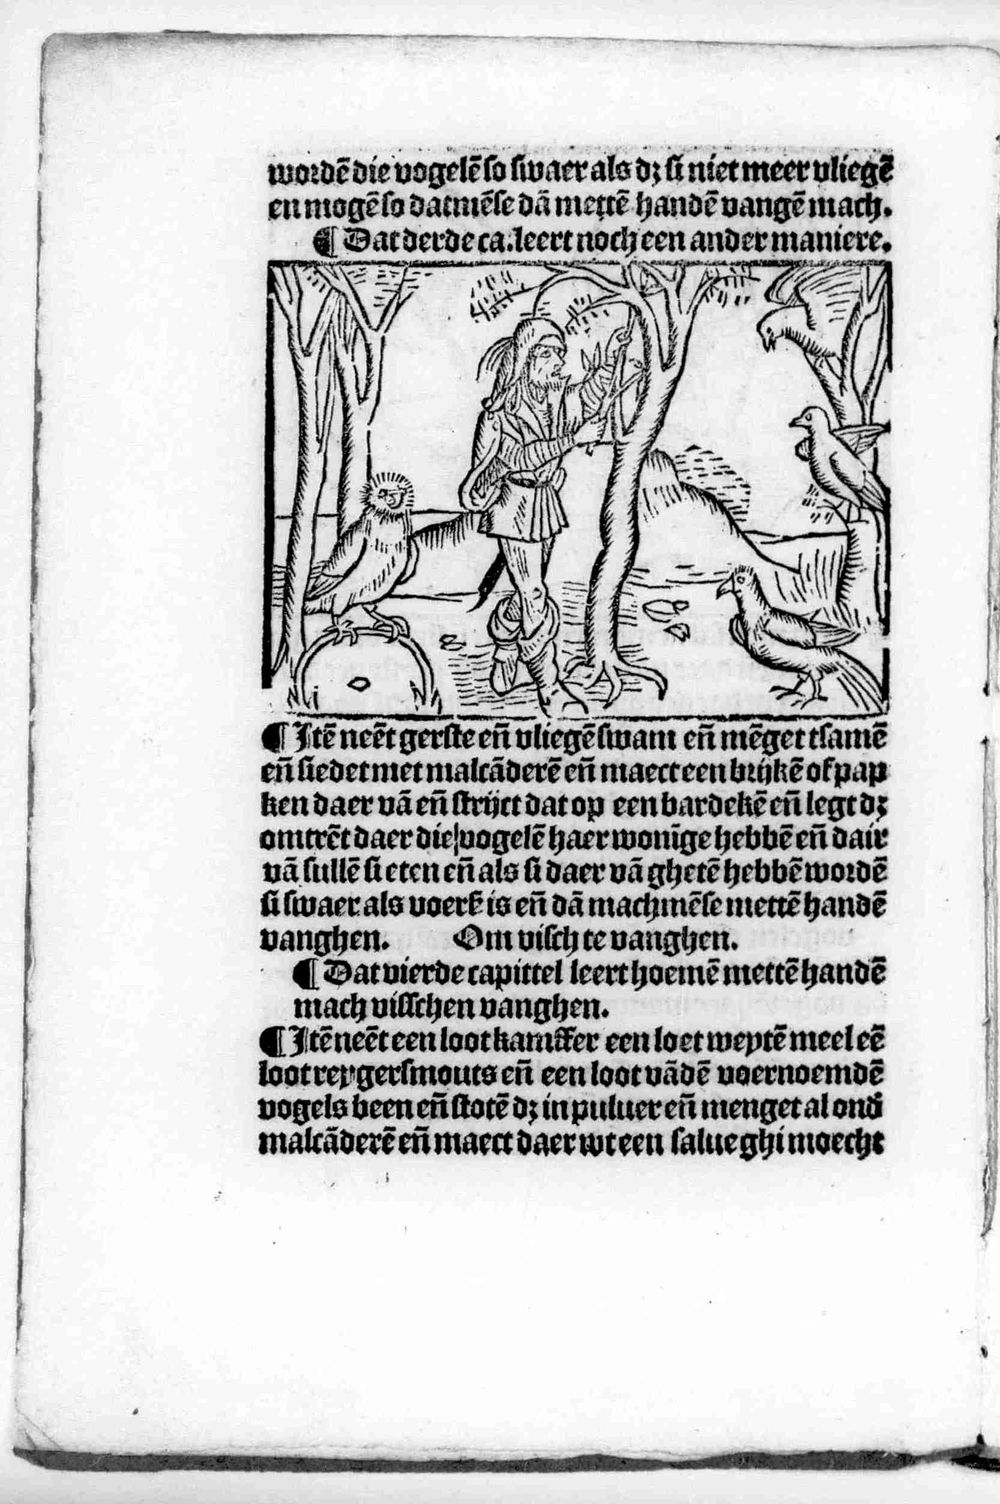 wordē die vogelē so swaer als dꝫ si niet meer vliegē
en mogē so datmēse dā mettē handē vangē mach.
¶ Dat derde ca. leert noch een ander maniere.
¶ Itē neēt gerste eñ vliegē swam eñ mēget tsamē
eñ siedet met malcāderē eñ maect een brijkē of pap
ken daer vā eñ strijct dat op een bardekē eñ legt dꝫ
omtrēt daer die vogelē haer wonīge hebbē eñ dair
vā sullē si eten eñ als si daer vā ghetē hebbē wordē
si swaer als voerß is eñ dā machmēse mettē handē
vanghen. Om visch te vanghen.
¶ Dat vierde capittel leert hoemē mettē handē
mach visschen vanghen.
¶ Itē neēt een loot kamffer een loet weytē meel eē
loot reygersmouts eñ een loot vādē voernoemdē
vogels been eñ stotē dꝫ in puluer eñ menget al ond
malcāderē eñ maect daer wt een salue ghi moecht